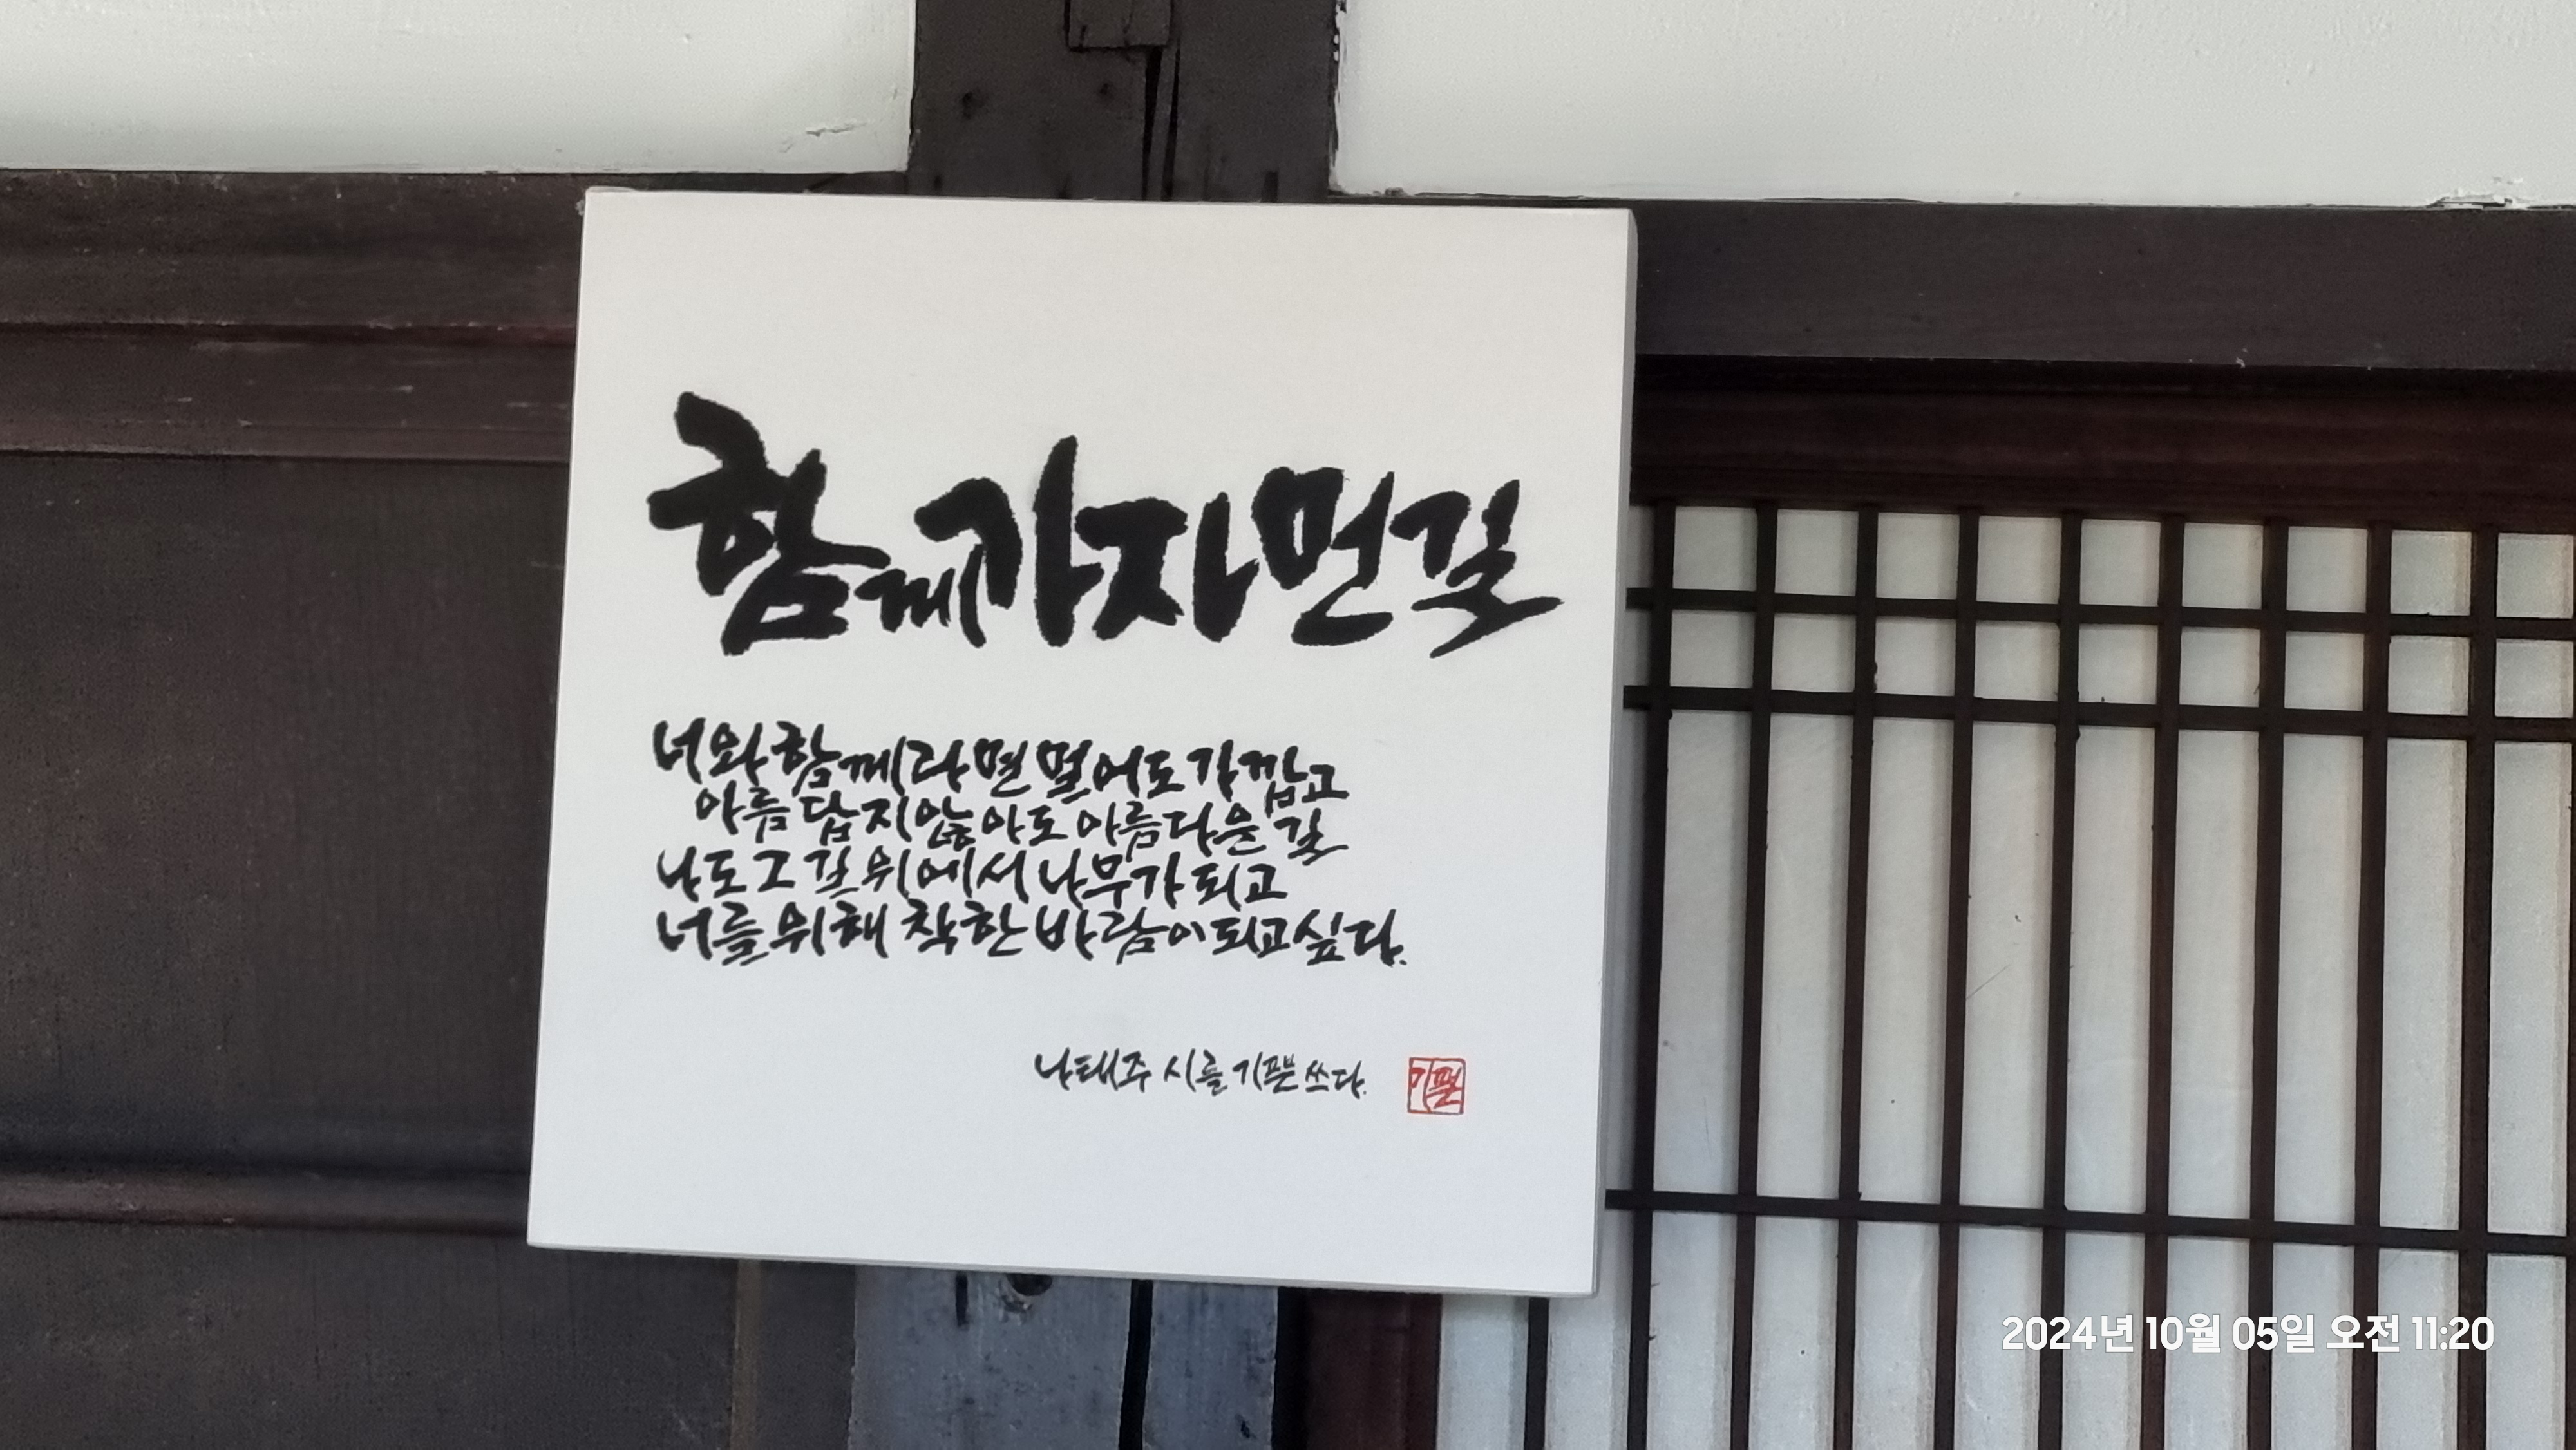 함께 가자 먼 길
너와 함께라면 멀어도 가깝고
아름답지 않아도 아름다운 길
나도 그 길 위에서 나무가 되고
너를 위해 착한 바람이 되고 싶다.
나태주 시를 기쁜 쓰다.
2024년 10월 05일 오전 11:20